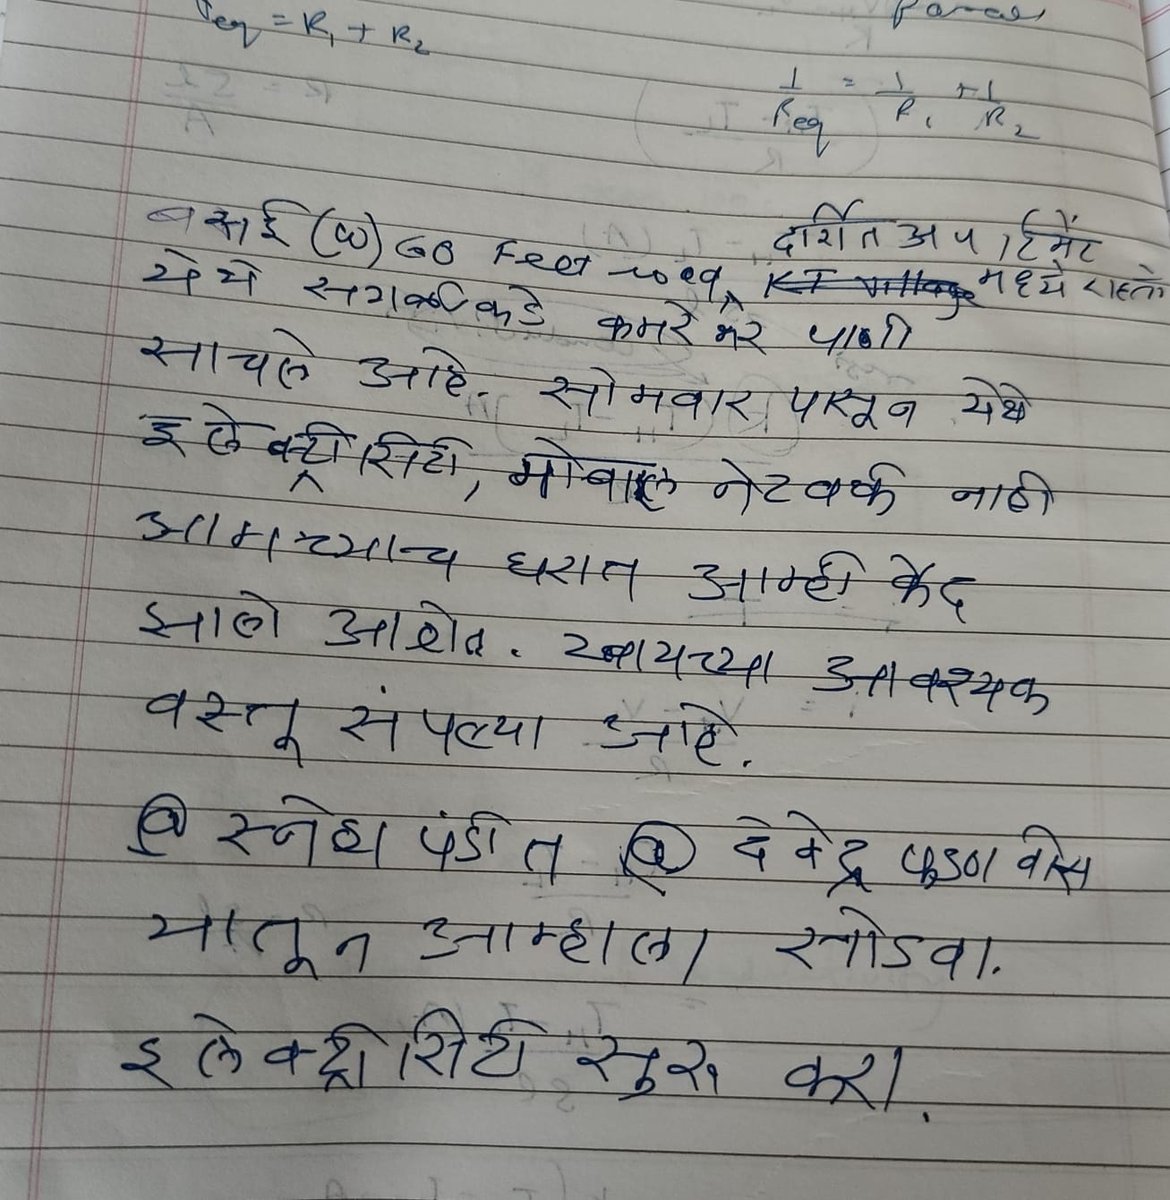 Req = R₁ + R₂
1/Req = 1/R₁ + 1/R₂
वसई (w) 60 Feet road, दर्शित अपार्टमेंट मध्ये राहतो
येथे सगळीकडे कमरेभर पाणी
साचले आहे. सोमवार पासून येथे
इलेक्ट्रीसिटी, मोबाईल नेटवर्क नाही
आमच्याच घरात आम्ही कैद
झालो आहोत. खायच्या आवश्यक
वस्तू संपल्या आहे.
@ स्नेहा पंडीत @ देवेंद्र फडणवीस
यातून आम्हाला सोडवा.
इलेक्ट्रीसिटी सुरू करा.